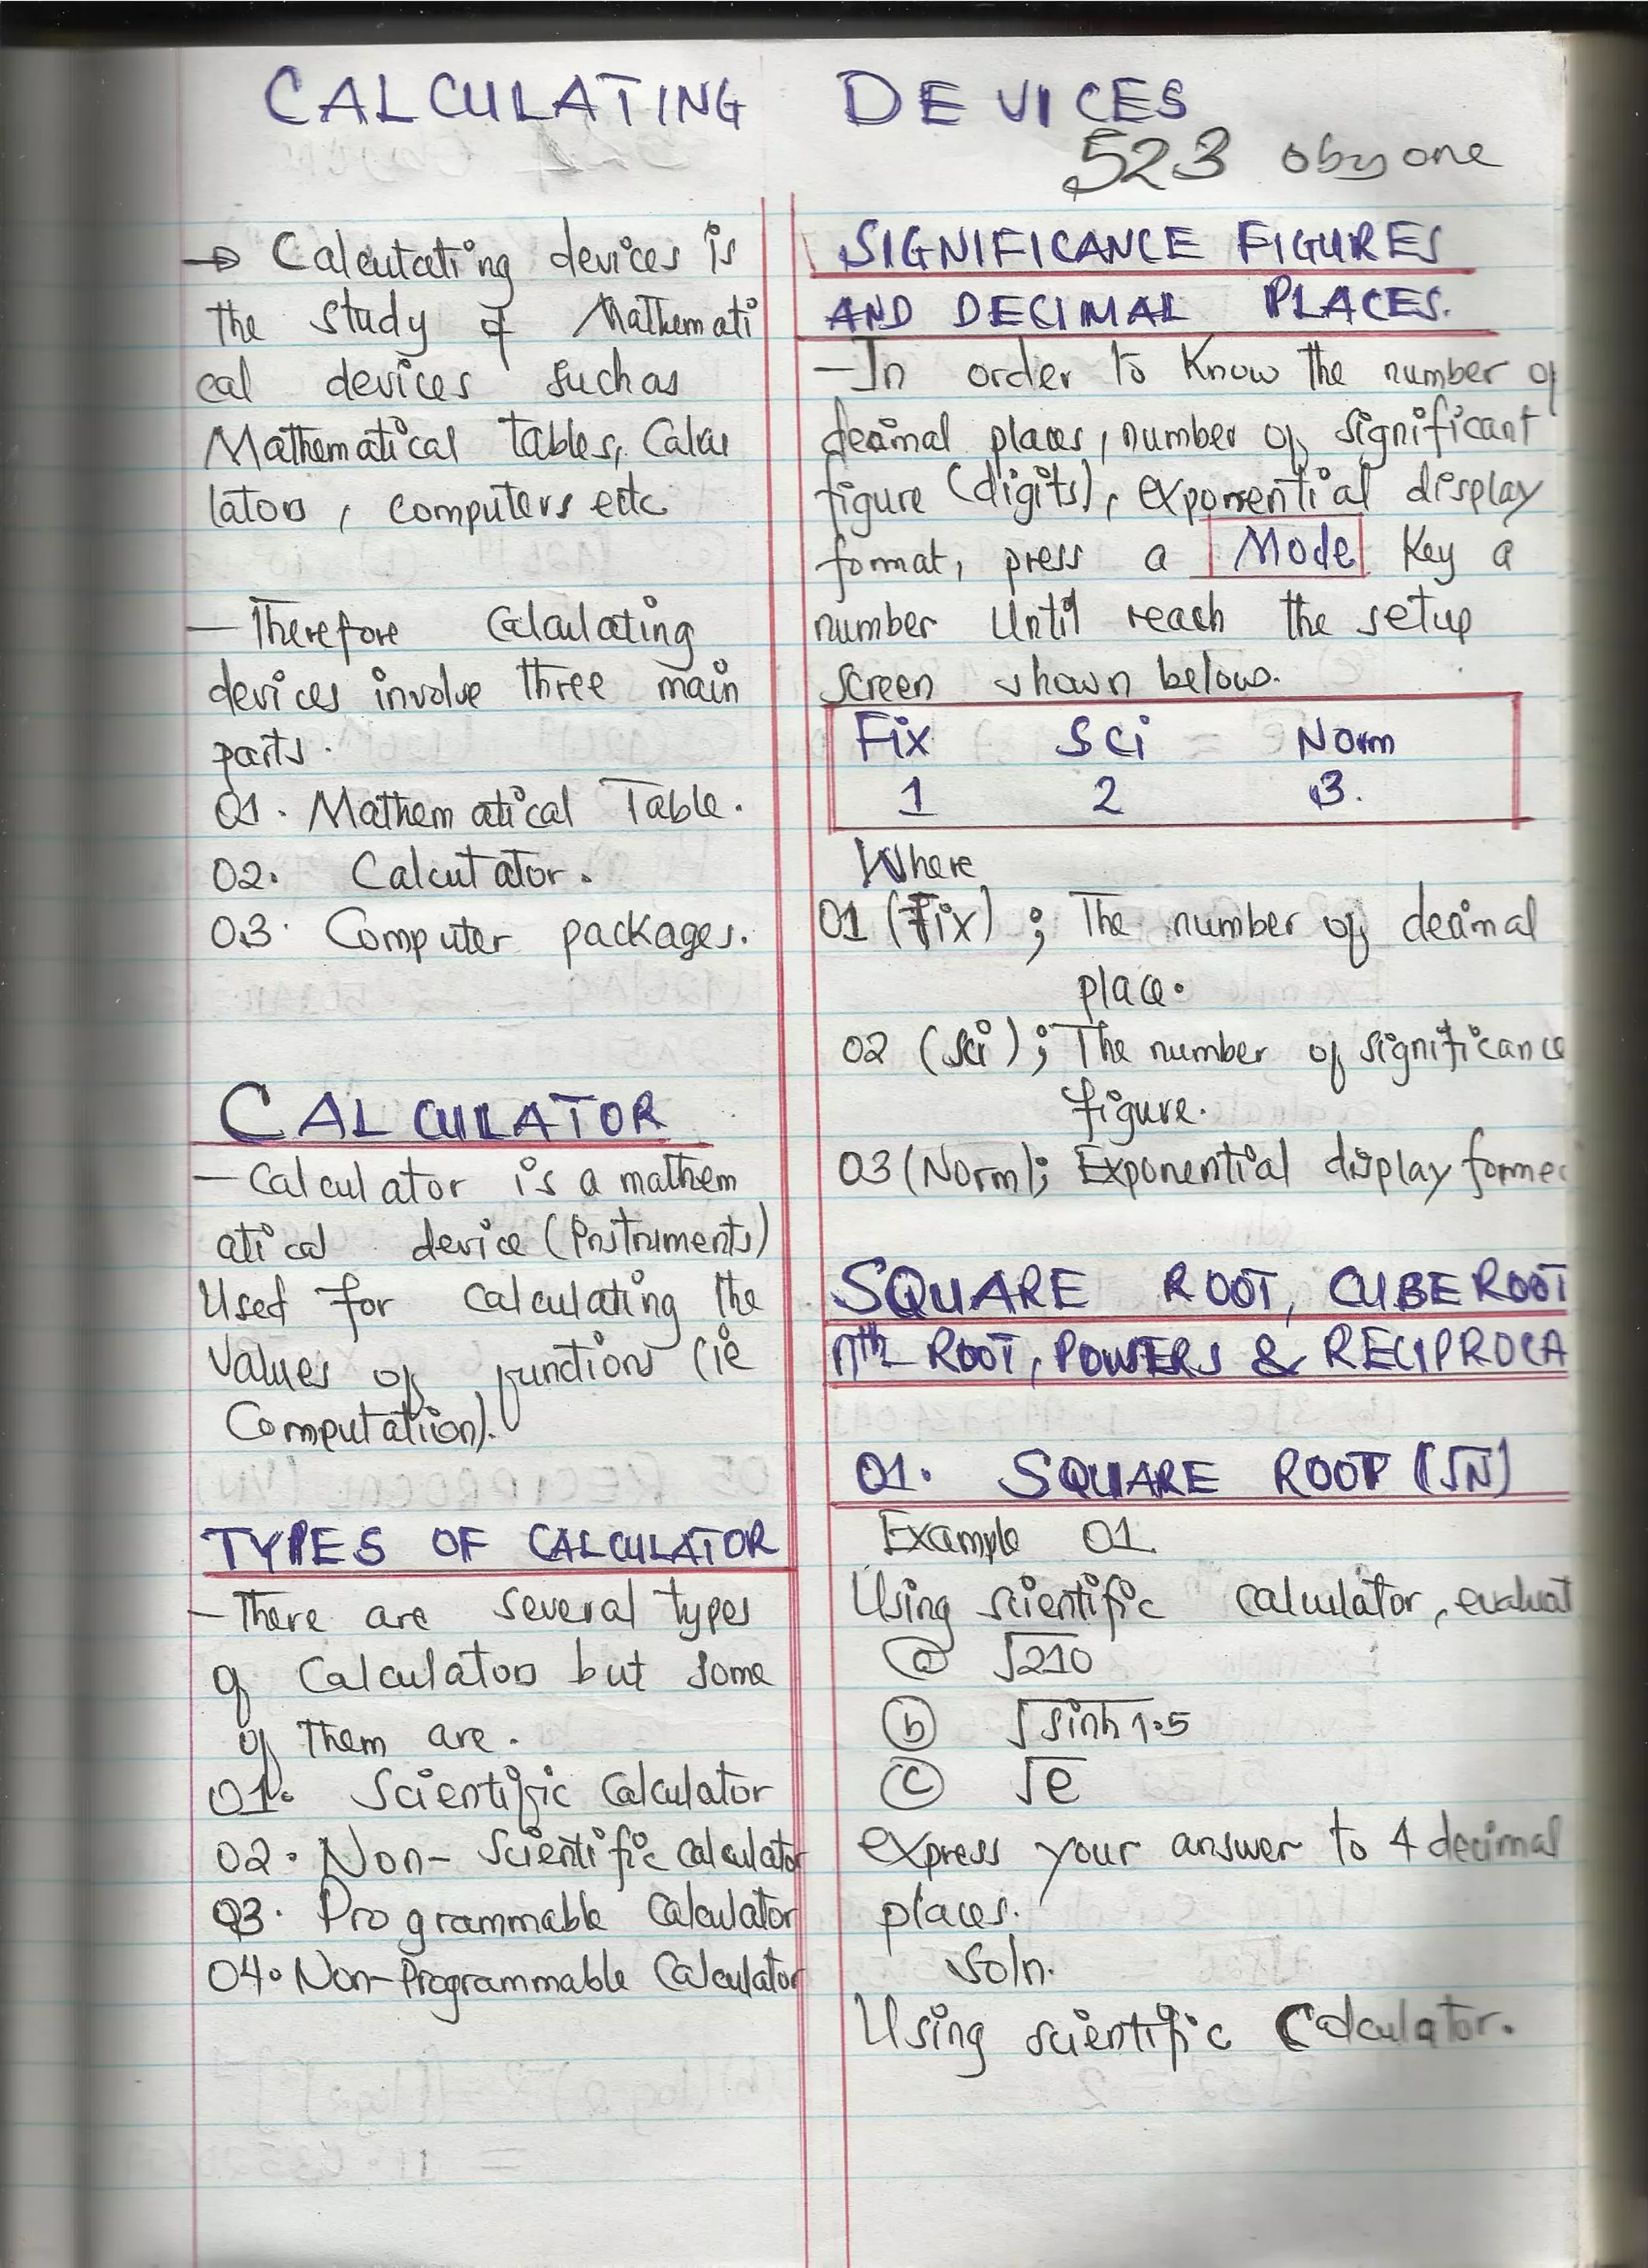 CALCULATING DEVICES
523 obyone
→ Calculating devices is
the study of Mathemati
cal devices such as
Mathematical tables, Calcu
lators, computers etc
— Therefore Calculating
devices involve three main
parts.
01. Mathematical Table.
02. Calculator.
03. Computer packages.
CALCULATOR
— Calculator is a mathem
atical device (Instruments)
Used for calculating the
values of functions (ie
Computation).
TYPES OF CALCULATOR
— There are several types
of Calculators but some
of them are.
01. Scientific Calculator
02. Non-Scientific calculator
03. Programmable Calculator
04. Non-Programmable Calculator
SIGNIFICANCE FIGURES
AND DECIMAL PLACES.
— In order to Know the number of
decimal places, number of significant
figure (digits), exponential display
format, press a Mode Key a
number Until reach the setup
screen shown below.
Fix Sci Norm
1 2 3.
Where
01 (Fix) ; The number of decimal
place.
02 (Sci) ; The number of significance
figure.
03 (Norm); Exponential display forme
SQUARE ROOT, CUBE ROOT
nth ROOT, POWERS & RECIPROCA
01. SQUARE ROOT (√N)
Example 01
Using scientific calculator, evaluat
(a) √210
(b) √sinh 1.5
(c) √e
express your answer to 4 decimal
places.
Soln.
Using scientific Calculator.